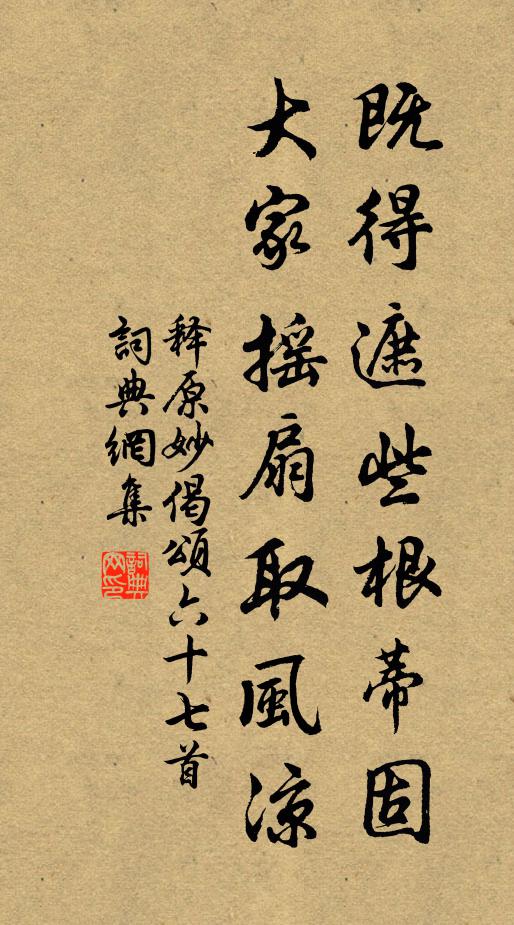 既得遮些根蒂固
大家摇扇取風涼
释原妙偈頌六十七首
詞典網集
詞典网印